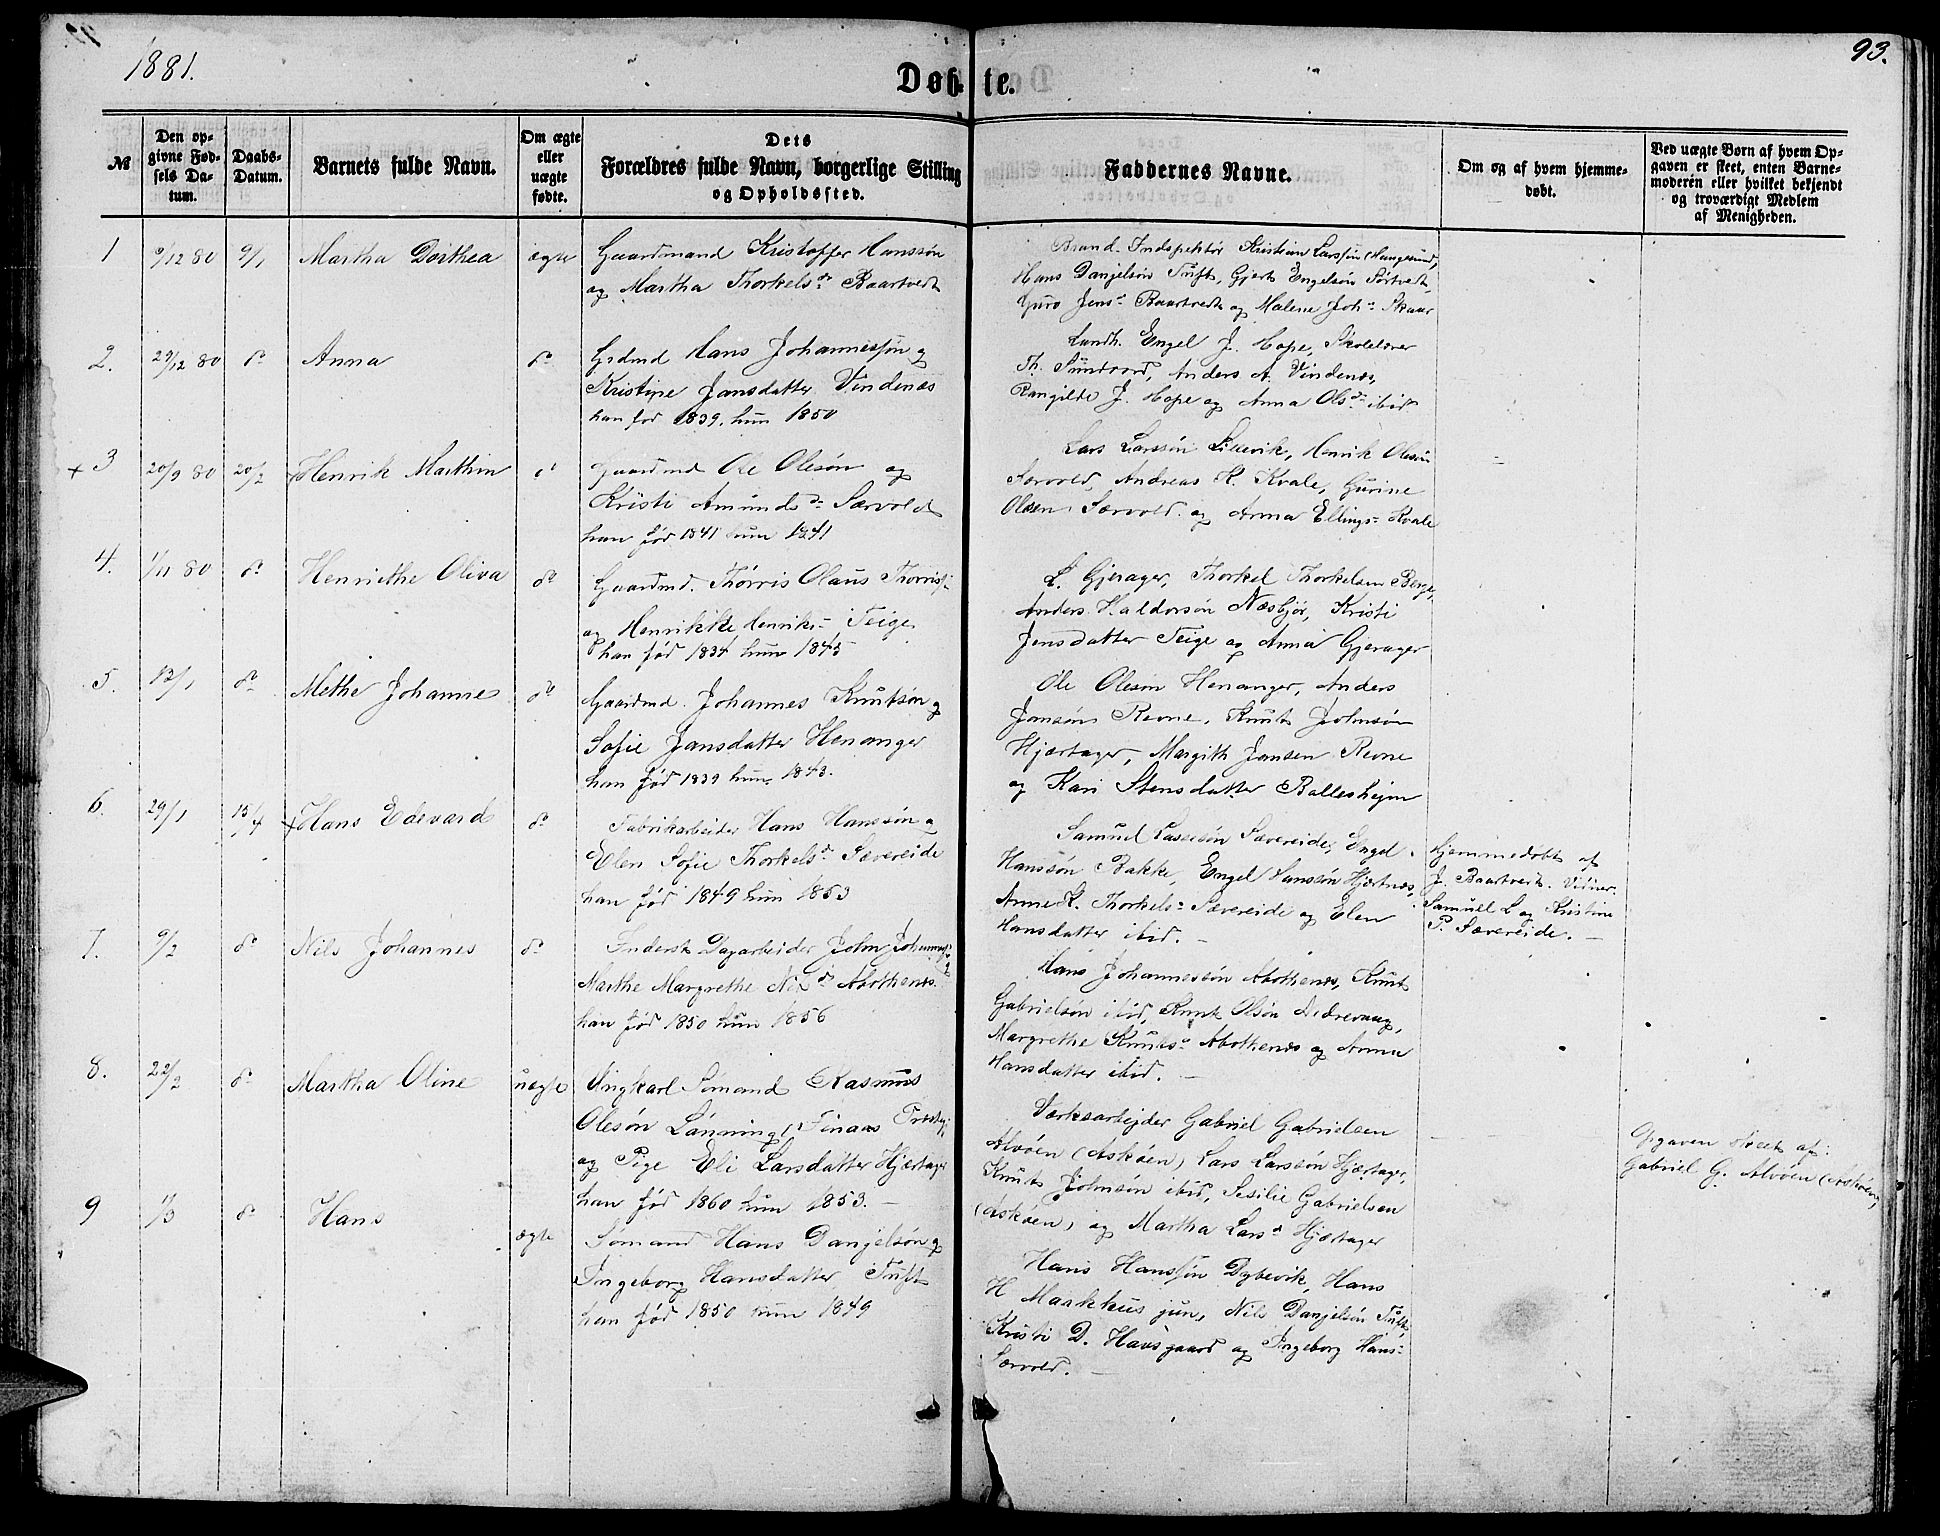 1881.
93.
Døbte.
№
Den opgivne Fødsels Datum.
Daabs-Datum.
Barnets fulde Navn.
Om ægte eller uægte fødte.
Dets Forældres fulde Navn, borgerlige Stilling og Opholdssted.
Faddernes Navne.
Om og af hvem hjemmedøbt.
Ved uægte Børn af hvem Opgaven er skeet, enten Barnemoderen eller hvilket bekjendt og troværdigt Medlem af Menigheden.
1
9/12 80
9/1
Martha Dorthea
ægte
Gaardmand Kristoffer Hanssøn
og Martha Thorkelsdr Baartvedt
Brand. Indspektør Kristian Larssøn (Haugesund),
Hans Danjelsøn Tuft, Gjert Engelsøn Tørtvedt,
Guro Jensdr Baartvedt og Malene Johsdr Skaar
2.
29/12 80
do
Anna
do
Grdmd Hans Johannessøn og
Kristine Jansdatter Vindenæs
han fød 1839, hun 1850
Landh. Engel J. Hope, Skolelærer
Th. Sundvord, Anders A. Vindenæs,
Rangilde J. Hope og Anna Olsdr ibid
+ 3
20/9 80
20/2
+Henrik Marthin
do
Gaardmd Ole Olesøn og
Kristi Amundsdr Særvold
han fød 1841 hun 1841
Lars Larssøn Lillevik, Henrik Olesøn
Særvold, Andreas H. Kvale, Gurine
Olsen Særvold og Anna Ellings- Kvale
4.
1/11 80
do
Henriethe Oliva
do
Gaardmd. Thorris Olaus Thorris-
og Henrikke Henriks- Teige
han fød 1834 hun 1845
L. Gjerager, Thorkel Thorkelsen Berge,
Anders Haldorsøn Næsbjør, Kristi
Jensdatter Teige og Anna Gjerager
5.
12/1
do
Methe Johanne
do
Gaardmd. Johannes Knutsøn og
Sofie Jansdatter Henanger
han fød 1839 hun 1843.
Ole Olesøn Henanger, Anders
Jansøn Revne, Knut Johnsøn
Hjærtager, Margith Jansen Revne
og Kari Stensdatter Ballesheim
6.
29/1
15/4
+Hans Edevard
do
Fabrikarbeider Hans Hanssøn og
Elen Sofie Thorkelsdr Sævereide
han fød 1849 hun 1853
Samuel Lassesøn Sævereide, Engel
Hanssøn Bakke, Engel Hanssøn Hjertnæs,
Anne K. Thorkels- Sævereide og Elen
Hansdatter ibid. –
Hjemmedøbt af
J. Baartvedt. Vidner.
Samuel L og Kristine
P. Sævereide. –
7.
9/2
do
Nils Johannes
do
Inderst Dagarbeider John Johanness- og
Marthe Margrethe Nilsdr Abothenæs
han fød 1850 hun 1856
Hans Johannessøn Abothenæs, Knut
Gabrielsøn ibid, Knut Olsøn Nedrevaag,
Margrethe Knutsdr Abothenæs og Anna
Hansdatter ibid. –
8.
22/2
do
Martha Oline
uægte
Ungkarl Sømand Rasmus
Olesøn Lønning, Finaas
og Pige Eli Larsdatter Hjærtager
han fød 1860 hun 1853. –
Værksarbejder Gabriel Gabrielsen
Alvøen (Askøen) Lars Larssøn Hjærtager,
Knut Johnsøn ibid, Sesilie Gabrielsen
(Askøen) og Martha Larsdr Hjærtager
Opgaven skeet af:
Gabriel G. Alvøen (Askøen)
9
1/3
do
Hans
ægte
Sømand Hans Danjelsøn og
Ingeborg Hansdatter Tuft
han fød 1850 hun 1849
Hans Hanssøn Dybevik, Hans
H Markhus jun, Nils Danjelsøn Tuft,
Kristi D. Hausgaard og Ingeborg Hans-
Særvold. –